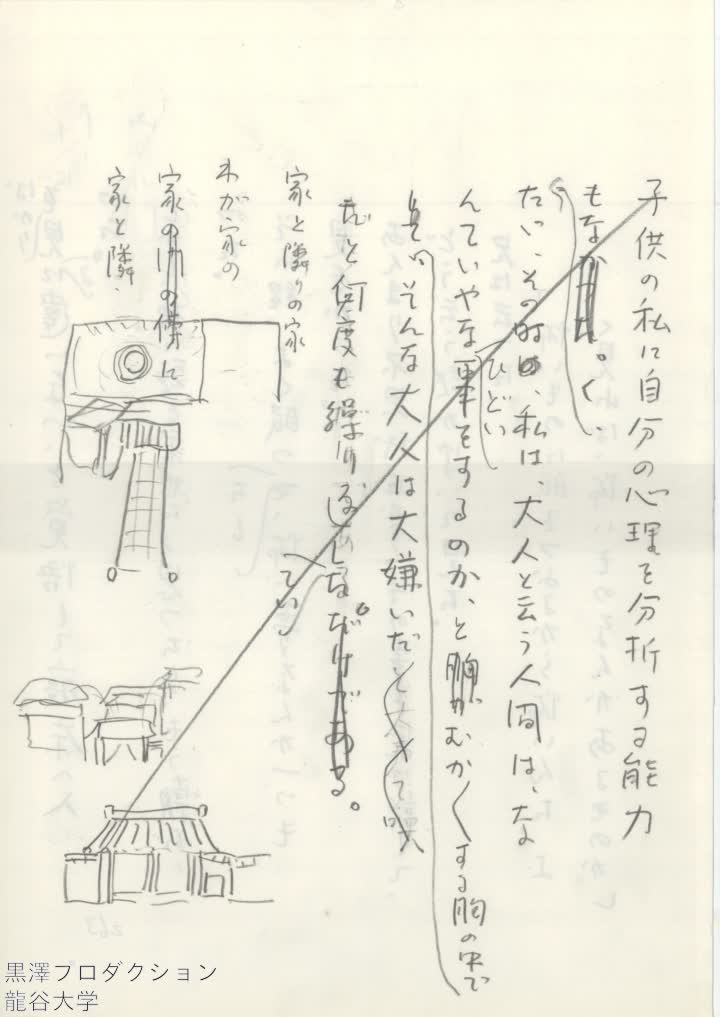 子供の私に自分の心理を分折する能力
もなかった。く、
たゞ、その時の、私は、大人と云う人間は、な
ひどい
んていやな事をするのか、と胸がむかくする胸の中で
そんな大人は大嫌いだと
だと何度も繰り返しなだけである。
てい
家と隣りの家
わが家の
家の門の傍に
家と隣
黒澤プロダクション
龍谷大学